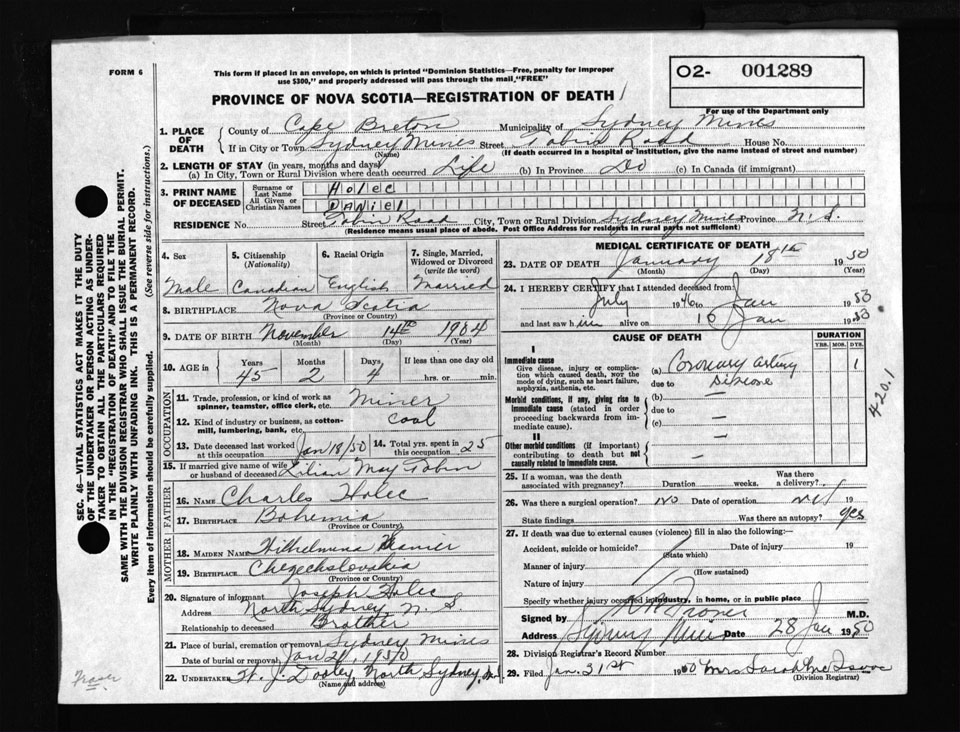 FORM 6
This form if placed in an envelope, on which is printed "Dominion Statistics—Free, penalty for improper
use $300," and properly addressed will pass through the mail, "FREE"
O2- 001289
For use of the Department only
PROVINCE OF NOVA SCOTIA—REGISTRATION OF DEATH
SEC. 46—VITAL STATISTICS ACT MAKES IT THE DUTY
OF THE UNDERTAKER OR PERSON ACTING AS UNDER-
TAKER TO OBTAIN ALL THE PARTICULARS REQUIRED
IN THE "REGISTRATION OF DEATH" AND TO FILE THE
SAME WITH THE DIVISION REGISTRAR WHO SHALL ISSUE THE BURIAL PERMIT.
WRITE PLAINLY WITH UNFADING INK. THIS IS A PERMANENT RECORD.
Every item of information should be carefully supplied. (See reverse side for instructions.)
1. PLACE OF DEATH County of Cape Breton Municipality of Sydney Mines
If in City or Town Sydney Mines Street Tobin Road House No.
(Name) (If death occurred in a hospital or institution, give the name instead of street and number)
2. LENGTH OF STAY (in years, months and days)
(a) In City, Town or Rural Division where death occurred Life (b) In Province Do (c) In Canada (if immigrant)
3. PRINT NAME OF DECEASED Surname or Last Name Holec
All Given or Christian Names Daniel
RESIDENCE No. Street Tobin Road City, Town or Rural Division Sydney Mines Province N.S.
(Residence means usual place of abode. Post Office Address for residents in rural parts not sufficient)
4. Sex 5. Citizenship (Nationality) 6. Racial Origin 7. Single, Married, Widowed or Divorced (write the word)
Male Canadian English Married
8. BIRTHPLACE Nova Scotia
(Province or Country)
9. DATE OF BIRTH November 14th 1904
(Month) (Day) (Year)
10. AGE in Years Months Days If less than one day old
45 2 4 hrs. or min.
OCCUPATION
11. Trade, profession, or kind of work as Miner
spinner, teamster, office clerk, etc.
12. Kind of industry or business, as cotton- Coal
mill, lumbering, bank, etc.
13. Date deceased last worked at this occupation Jan 18/50 14. Total yrs. spent in this occupation 25
15. If married give name of wife or husband of deceased Lilian May Tobin
FATHER
16. NAME Charles Holec
17. BIRTHPLACE Bohemia
(Province or Country)
MOTHER
18. MAIDEN NAME Wilhelmena
19. BIRTHPLACE Chezechslovakia
(Province or Country)
20. Signature of informant Joseph Holec
Address North Sydney, N.S
Relationship to deceased Brother
21. Place of burial, cremation or removal Sydney Mines
Date of burial or removal Jan 21, 1950
22. UNDERTAKER H. J. Dooley, North Sydney, N.S
(Name and address)
Fraser
MEDICAL CERTIFICATE OF DEATH
23. DATE OF DEATH January 18th 1950
(Month) (Day) (Year)
24. I HEREBY CERTIFY that I attended deceased from
July 1946 to Jan 1950
and last saw him alive on 10 Jan 19
CAUSE OF DEATH DURATION
YRS. MOS. DYS.
I
Immediate cause (a) Coronary artery 1
Give disease, injury or complica- due to Disease
tion which caused death, NOT the
mode of dying, such as heart failure,
asphyxia, asthenia, etc.
Morbid conditions, if any, giving rise to (b) —
immediate cause (stated in order due to —
proceeding backwards from im- (c) —
mediate cause).
II
Other morbid conditions (if important) —
contributing to death but not
causally related to immediate cause.
420.1
25. If a woman, was the death associated with pregnancy? Duration weeks. Was there a delivery?
26. Was there a surgical operation? No Date of operation 19
State findings Was there an autopsy? yes
27. If death was due to external causes (violence) fill in also the following:—
Accident, suicide or homicide? Date of injury 19
(State which)
Manner of injury
(How sustained)
Nature of injury
Specify whether injury occurred in industry, in home, or in public place
Signed by M.D.
Address Sydney Mines Date 28 Jan 1950
28. Division Registrar's Record Number
29. Filed Jan. 31st 1950 Mrs Sarah McIsaac
(Division Registrar)